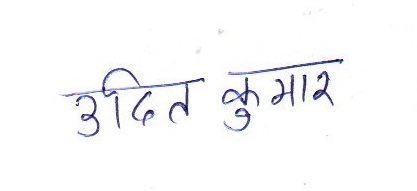 उदित कुमार